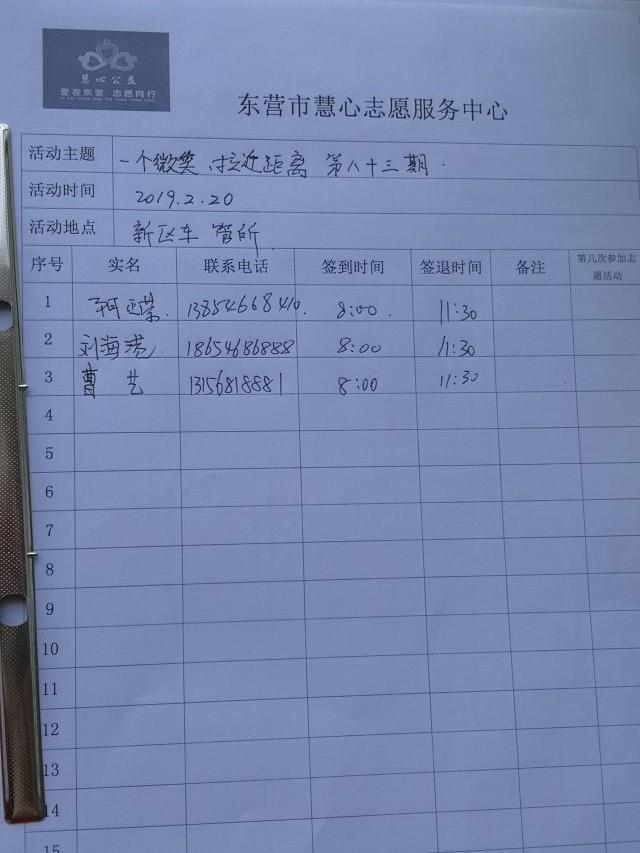 慧心公益
爱在东营 志愿同行
东营市慧心志愿服务中心
活动主题 一个微笑 拉近距离 第八十三期
活动时间 2019.2.20
活动地点 新区车管所
序号 实名 联系电话 签到时间 签退时间 备注 第几次参加志愿活动
1 荣 13854668410 8:00 11:30
2 刘海 18654686888 8:00 11:30
3 曹艺 13156818881 8:00 11:30
4
5
6
7
8
9
10
11
12
13
14
15